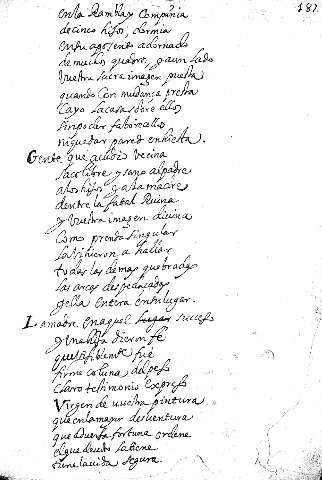 187
en la Rambla y Compañia
de cinco hijos, dormia
en su aposento adornado
de muchos quadros, y a un lado
vuestra sacra imagen puesta
quando con mudança presta
cayo la casa sobre ellos
sin poder faborecellos
ni quedar pared enhiesta.
Gente que acudio vecina
saco libre y sano al padre
a los hijos y a la madre
dentre la fatal Ruina
y vuestra imagen divina
como prenda singular
la vinieron a hallar
todas las demas quebradas
las arcas despedaçadas
y ella entera en su lugar.
La madre en aquel lugar sucesso
y una hija dieron fe
que fue
firme coluna del peso
claro testimonio expresso
Virgen de vuestra pintura
que en la mayor desventura
que adversa fortuna ordene
el que devoto la tiene
tiene la vida segura.